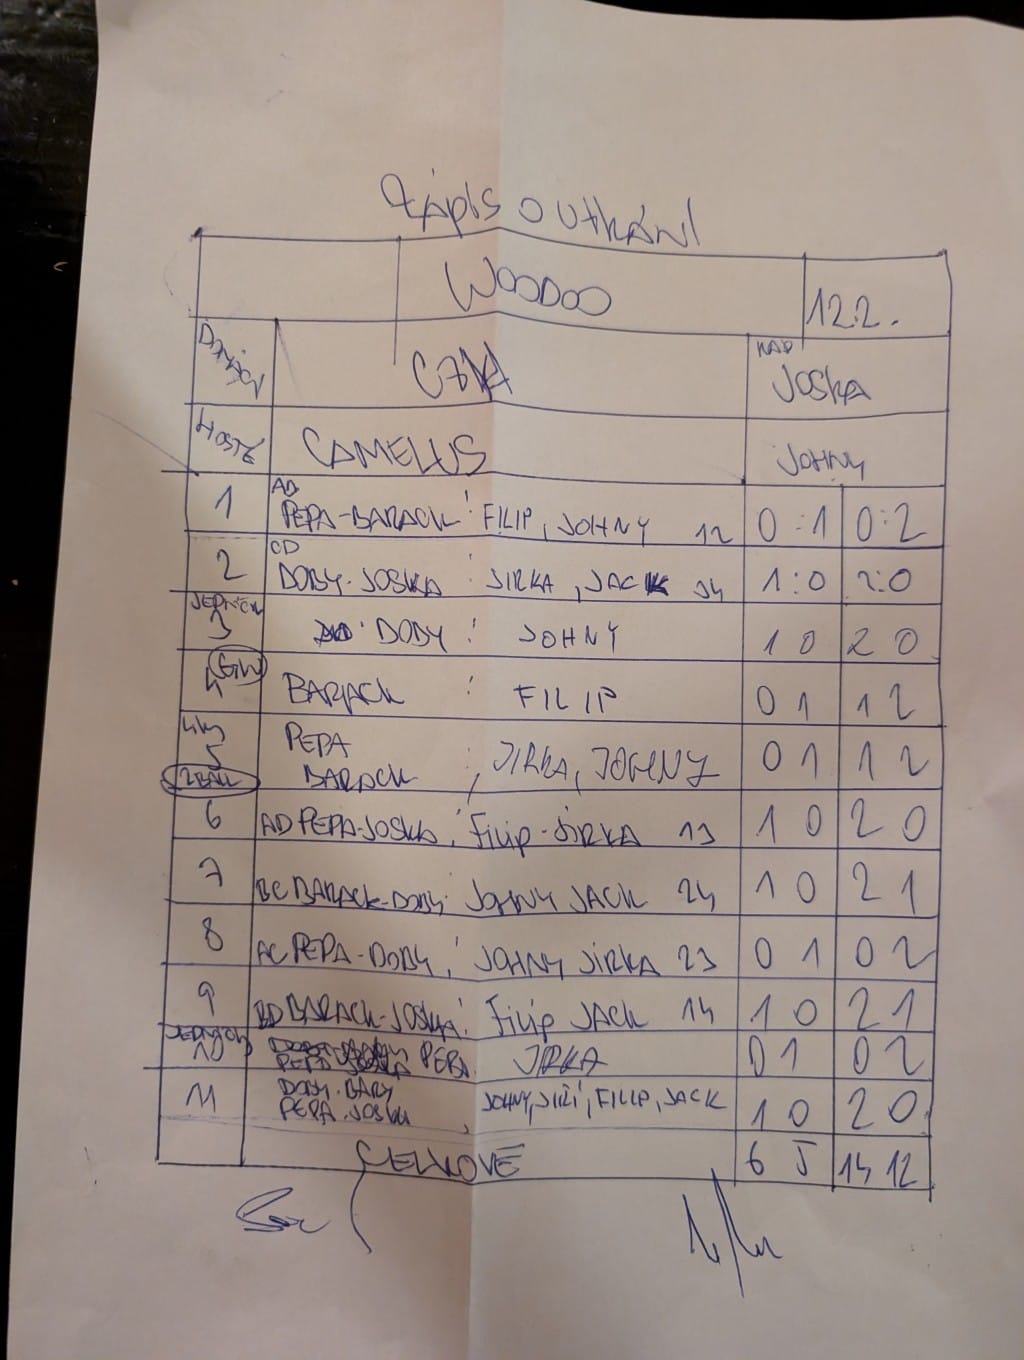 Zápis o utkání
WOODOO 12.2.
Domácí CZKA KAP JOSKA
HOSTÉ CAMELUS JOHNY
1 AD PEPA-BARACK : FILIP, JOHNY 12 0:1 0:2
2 CD DOBY-JOSKA : JIRKA, JACK 34 1:0 2:0
3 DOBY : JOHNY 1 0 2 0
4 BARACK : FILIP 0 1 1 2
5 PEPA BARACK : JIRKA, JOHNY 0 1 1 2
6 AD PEPA-JOSKA : Filip-JIRKA 13 1 0 2 0
7 BC BARACK-DOBY : JOHNY JACK 24 1 0 2 1
8 AC PEPA-DOBY : JOHNY JIRKA 23 0 1 0 2
9 BD BARACK-JOSKA : Filip JACK 14 1 0 2 1
10 PEPA JIRKA 0 1 0 2
11 DOBY-BARY
PEPA-JOSKA , JOHNY, JIŘÍ, FILIP, JACK 1 0 2 0
CELKOVĚ 6 5 14 12